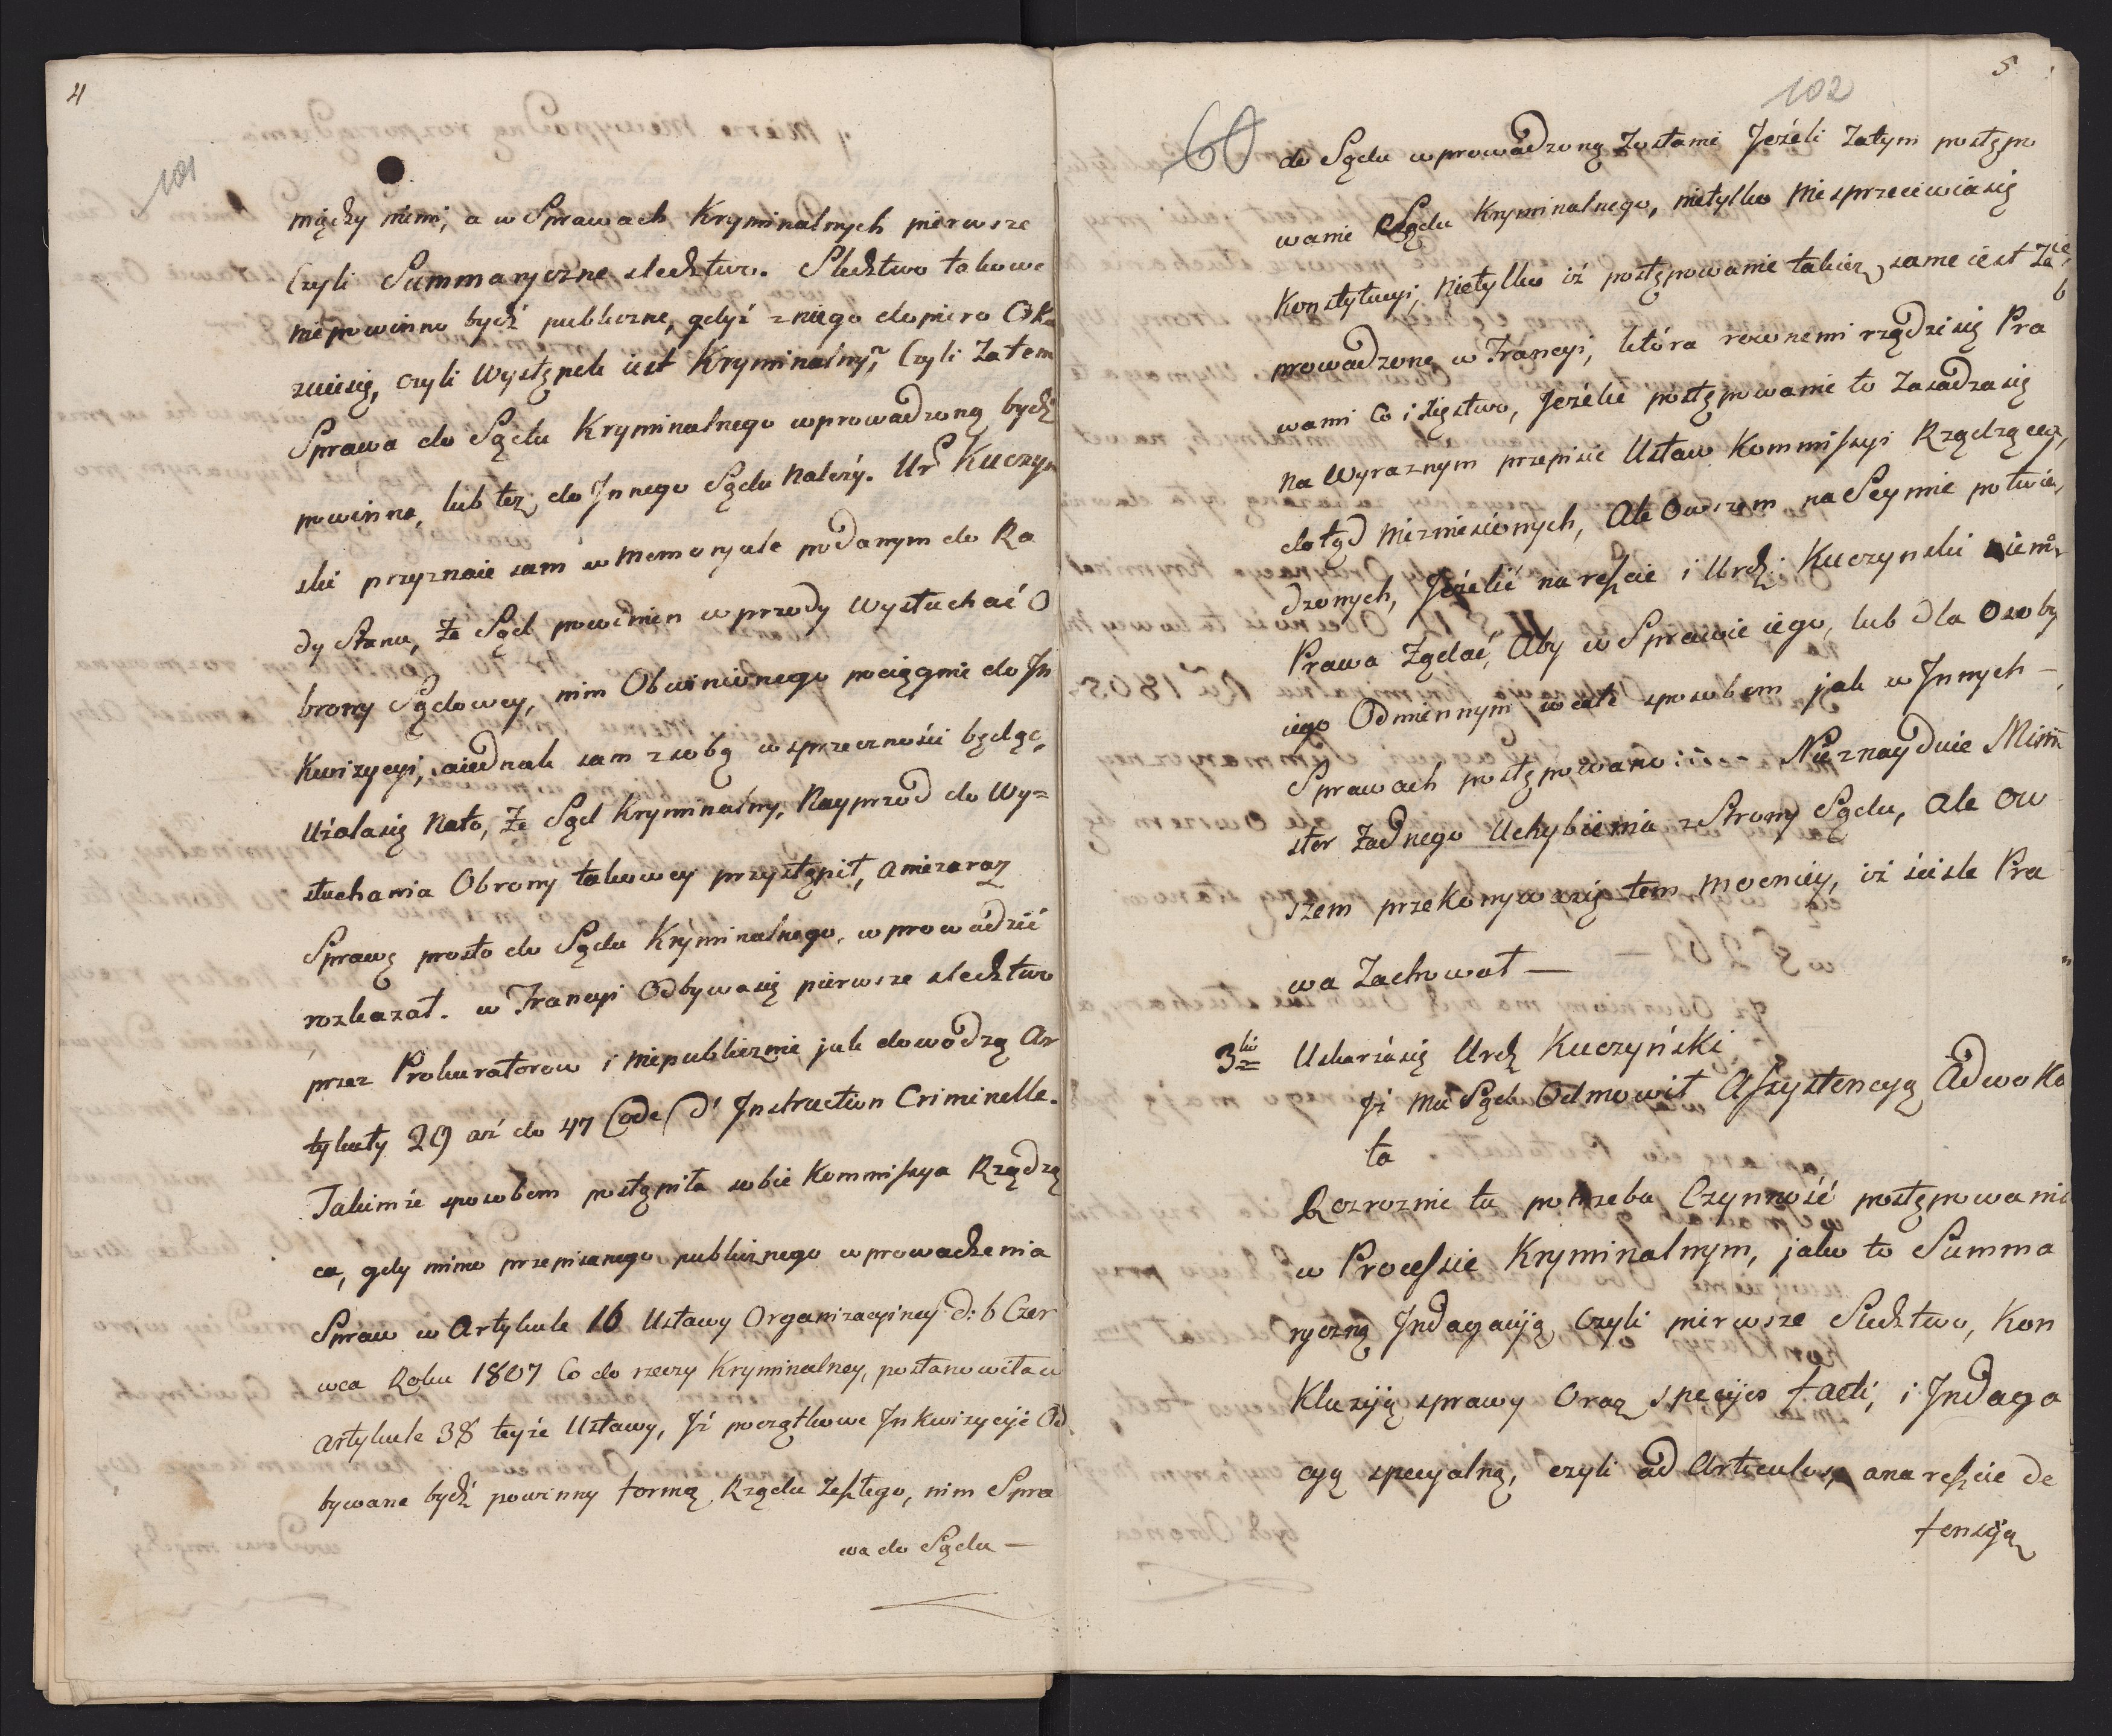 4
101
między niemi, a w Sprawach Kryminalnych pierwsze
Czyli Summaryczne sledztwo. Sledztwo takowe
nie powinno bydź publiczne, gdyż z niego dopiero Oka
zuie się, czyli Występek iest Kryminalny, Czyli Zatem
Sprawa do Sądu Kryminalnego wprowadzoną bydź
powinna, lub też do Innego Sądu należy. Ur. Kuczyń
ski przyznaie sam w memoryale podanym do Ra
dy Stanu, że Sąd powinien wprzody wysłuchać O
brony Sądowey, nim Obwinionego pociągnie do In
kwizycyi, a iednak sam z sobą w sprzeczności będąc,
Użala się Na to, Że Sąd Kryminalny, Nayprzod do Wy=
słuchania Obrony takowey przystąpił, a nie zaraz
Sprawę prosto do Sądu Kryminalnego wprowadzić
rozkazał. w Francyi Odbywa się pierwsze sledztwo
przez Prokuratorow i niepublicznie jak dowodzą Ar
tykuły 29 aż do 47 Code d' Instruction Criminelle.
Takimże sposobem postąpiła sobie Kommissya Rządzą
ca, gdy mimo przepisanego publicznego wprowadzenia
Spraw w Artykule 16 Ustawy Organizacyiney d: 6 Czer
wca Roku 1807 Co do rzeczy Kryminalney, postanowiła w
artykule 38 teyże Ustawy, Iż początkowe Inkwizycyie Od
bywane bydź powinny formą Rządu Zeszłego, nim Spra
wa do Sądu —
5
102
60
do Sądu wprowadzoną Zostanie Jeżeli Zatym postępo
wanie Sądu Kryminalnego, nietylko nie sprzeciwia się
Konstytucyi, nietylko iż postępowanie takież same iest Za
prowadzone w Francyi, która rownemi rządzi się Pra
wami Co i Xięstwo, Jeżeli postępowanie to Zasadza się
na wyraznym przepisie Ustaw Kommissyi Rządzącey,
dotąd niezniesionych, Ale Owszem na Seymie potwier
dzonych, Jeżelić nareszcie i Urdz: Kuczynski niema
Prawa Żądać, Aby w Sprawie iego, lub dla Osoby
iego Odmiennym wcale sposobem jak w Innych —
Sprawach postępowano: — Nieznayduie Mini
ster Żadnego Uchybienia z Strony Sądu, ale ow
szem przekonywa się tem mocniey, iż ściśle Pra
wa Zachował —
3tio Uskarża się Urdz Kuczyński
Iż mu Sąd Odmowił Assystencyą Adwoka
ta
Rozroznić tu potrzeba Czynność postępowania
w Processie Kryminalnym, jako to Summa
ryczną Indagacyją czyli pierwsze Sledztwo, Kon
kluzyją sprawy Oraz species facti, i Indaga
cyą specyalną, czyli ad Articulos, a nareszcie de
fensyją